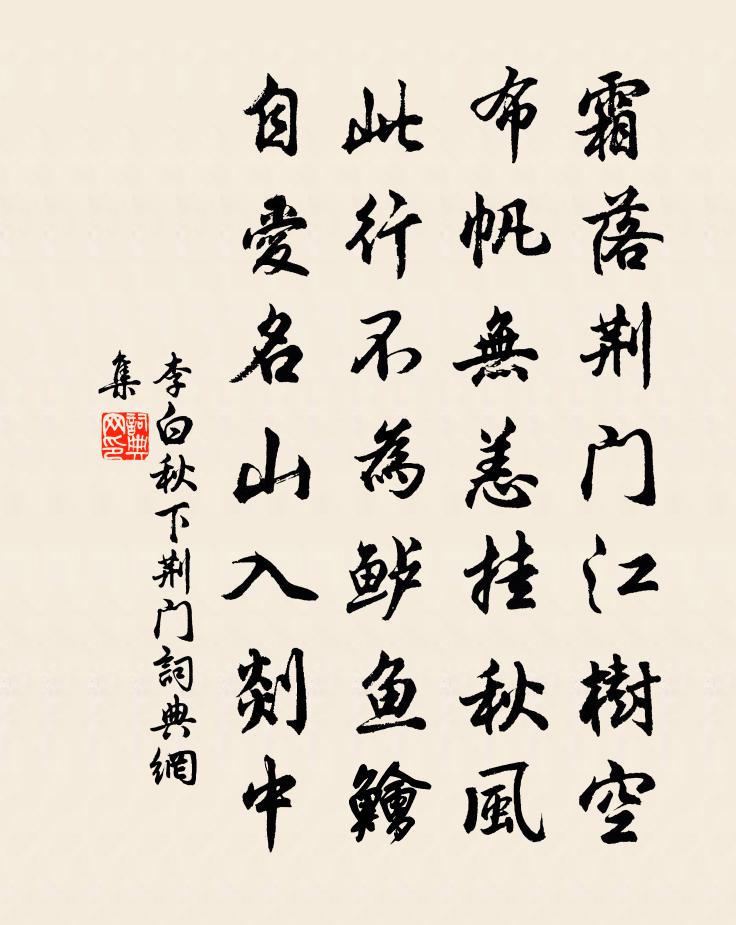 霜落荆门江樹空
布帆無恙挂秋風
此行不為鲈鱼鱠
自愛名山入剡中
李白秋下荆门詞典網
集
詞典
网印